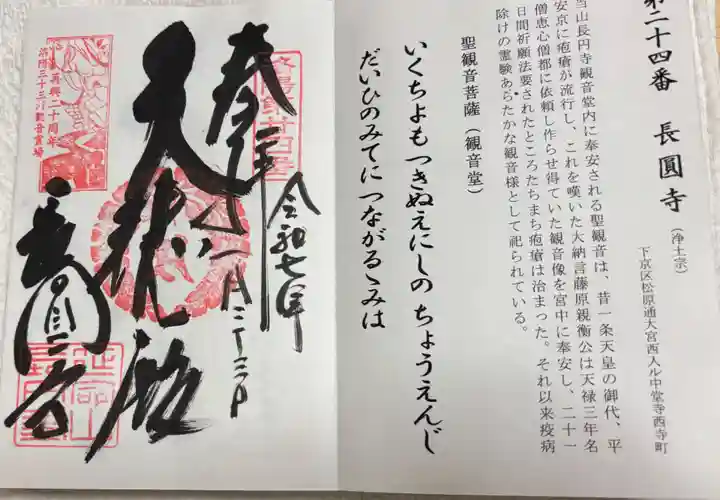 第二十四番 長圓寺（浄土宗）
下京区松原通大宮西入ル中堂寺西寺町
当山長円寺観音堂内に奉安される聖観音は、昔一条天皇の御代、平
安京に疱瘡が流行し、これを嘆いた大納言藤原親衡公は天禄三年名
僧恵心僧都に依頼し作らせ得ていた観音像を宮中に奉安し、二十一
日間祈願法要されたところたちまち疱瘡は治まった。それ以来疫病
除けの霊験あらたかな観音様として祀られている。
聖観音菩薩（観音堂）
いくちよも つきぬえにしの ちょうえんじ
だいひのみてに つながるゝみは
令和七年
奉拝
洛陽第廿四番
長圓寺
再興二十周年
洛陽三十三所観音霊場